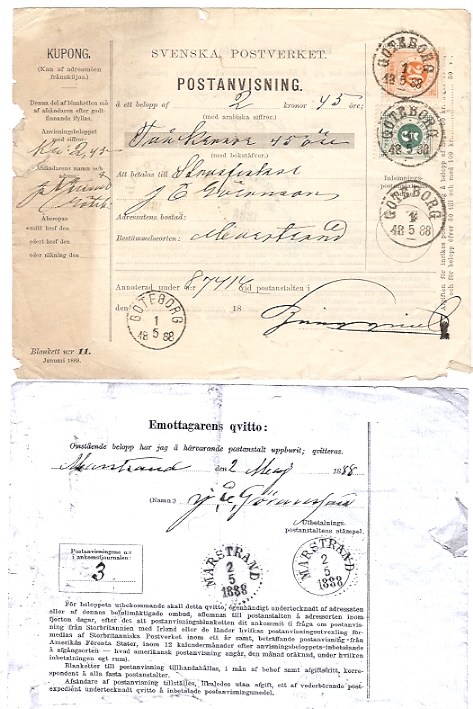 KUPONG.
(Kan af adressaten
frånskiljas.)
Denna del af blanketten må
af afsändaren efter godt-
finnande ifyllas.
Anvisningsbeloppet
med siffror:
Kr. 2,45
Afsändarens namn och
Åberopas
mitt bref den
edert bref den
eller räkning den
Blankett n:r 11.
Januari 1888.
SVENSKA POSTVERKET.
POSTANVISNING.
å ett belopp af 2 kronor 45 öre;
(med arabiska siffror.)
Två Kronor 45 öre
(med bokstäfver.)
Att betalas till
J E Göranson
Adressatens bostad:
Bestämmelseorten: Marstrand
Annoterad under n:r 87414 vid postanstalten i
den 18
GÖTEBORG
1
18 5 88
GÖTEBORG
1
18 5 88
GÖTEBORG
1
18 5 88
GÖTEBORG
1
18 5 88
Inlemnings-
Emottagarens qvitto:
Omstående belopp har jag å härvarande postanstalt uppburit; qvitteras.
Marstrand den 2 Maj 1888
(Namn:) J. E. Göransson
Utbetalnings-
postanstaltens stämpel.
Postanvisningens n:r
i ankomstjournalen:
3
MARSTRAND
2
5
1888
MARSTRAND
2
5
1888
För beloppets utbekommande skall detta qvitto, egenhändigt undertecknadt af adressaten
eller af dennes befullmäktigade ombud, aflemnas till postanstalten å adressorten inom
fjorton dagar, efter det att postanvisningsblanketten dit ankommit (i fråga om postanvis-
ning från Storbritannien med Irland eller de länder hvilkas postanvisningsutvexling för-
medlas af Storbritanniska Postverket inom ett år samt, beträffande postanvisning från
Amerikas Förenta Stater, inom 12 kalendermånader efter anvisningsbeloppets inbetalande
å afgångsorten — hvad amerikansk postanvisning angår, den månad oräknad, under hvilken
inbetalningen egt rum).
Blanketter till postanvisning tillhandahållas, i mån af behof samt afgiftsfritt, korre-
spondent å alla fasta postanstalter.
Afsändare af postanvisning tillställes, likaledes utan afgift, ett af vederbörande post-
expedient undertecknadt qvitto å inbetalade postanvisningsmedel.